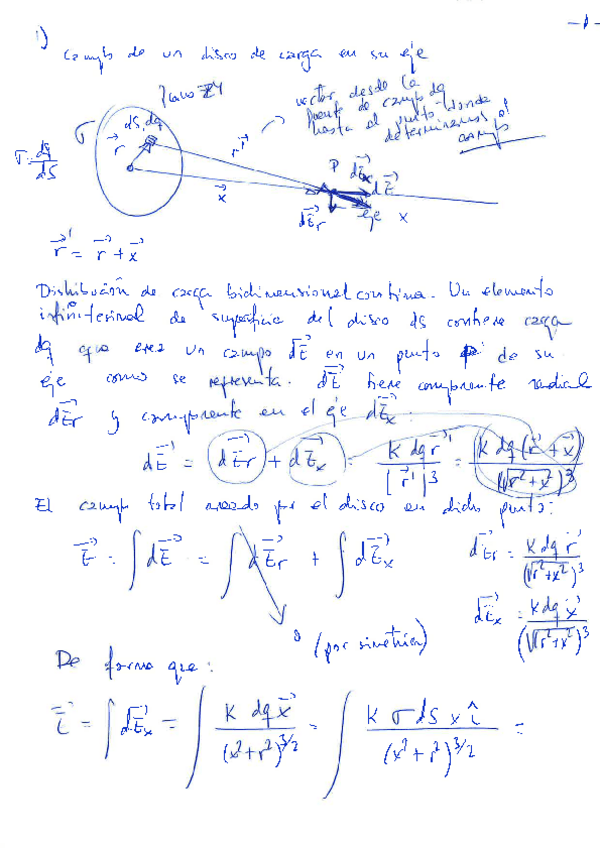 -1-
1)
Campo de un disco de carga en su eje
Plano ZY
σ
dS, dq
r⃗
r⃗'
vector desde la
fuente de campo dq
hasta el punto donde
determinamos el
campo
σ = dq/dS
P
dE⃗x
dE⃗
dE⃗r
eje x
x⃗
r⃗' = r⃗ + x⃗
Distribución de carga bidimensional continua. Un elemento
infinitesimal de superficie del disco dS contiene carga
dq que crea un campo dE⃗ en un punto P de su
eje como se representa. dE⃗ tiene componente radial
dE⃗r y componente en el eje dE⃗x:
dE⃗ = dE⃗r + dE⃗x = K dq r⃗' / |r⃗'|³ = K dq (r⃗ + x⃗) / (√r²+x²)³
El campo total creado por el disco en dicho punto:
E⃗ = ∫ dE⃗ = ∫ dE⃗r + ∫ dE⃗x
dE⃗r = K dq r⃗ / (√r²+x²)³
dE⃗x = K dq x⃗ / (√r²+x²)³
0 (por simetría)
De forma que:
E⃗ = ∫ dE⃗x = ∫ K dq x⃗ / (x²+r²)^3/2 = ∫ K σ dS x î / (x²+r²)^3/2 =